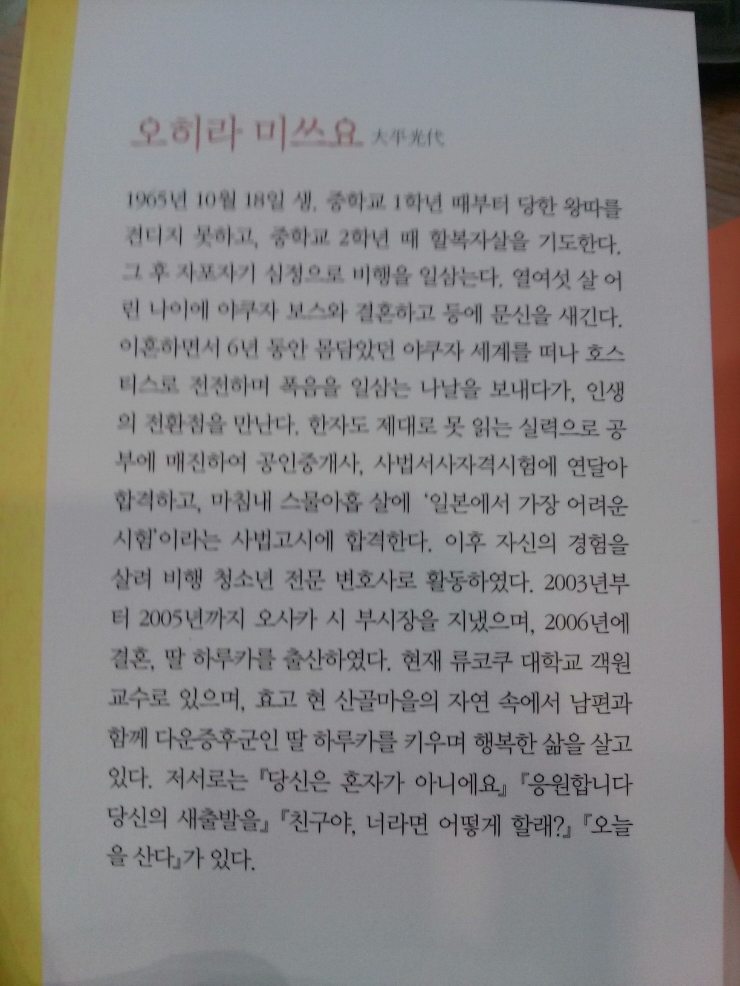 오히라 미쓰요 大平光代
1965년 10월 18일 생. 중학교 1학년 때부터 당한 왕따를
견디지 못하고, 중학교 2학년 때 할복자살을 기도한다.
그 후 자포자기 심정으로 비행을 일삼는다. 열여섯 살 어
린 나이에 야쿠자 보스와 결혼하고 등에 문신을 새긴다.
이혼하면서 6년 동안 몸담았던 야쿠자 세계를 떠나 호스
티스로 전전하며 폭음을 일삼는 나날을 보내다가, 인생
의 전환점을 만난다. 한자도 제대로 못 읽는 실력으로 공
부에 매진하여 공인중개사, 사법서사자격시험에 연달아
합격하고, 마침내 스물아홉 살에 ‘일본에서 가장 어려운
시험’이라는 사법고시에 합격한다. 이후 자신의 경험을
살려 비행 청소년 전문 변호사로 활동하였다. 2003년부
터 2005년까지 오사카 시 부시장을 지냈으며, 2006년에
결혼, 딸 하루카를 출산하였다. 현재 류코쿠 대학교 객원
교수로 있으며, 효고 현 산골마을의 자연 속에서 남편과
함께 다운증후군인 딸 하루카를 키우며 행복한 삶을 살고
있다. 저서로는 『당신은 혼자가 아니에요』 『응원합니다
당신의 새출발을』 『친구야, 너라면 어떻게 할래?』 『오늘
을 산다』가 있다.